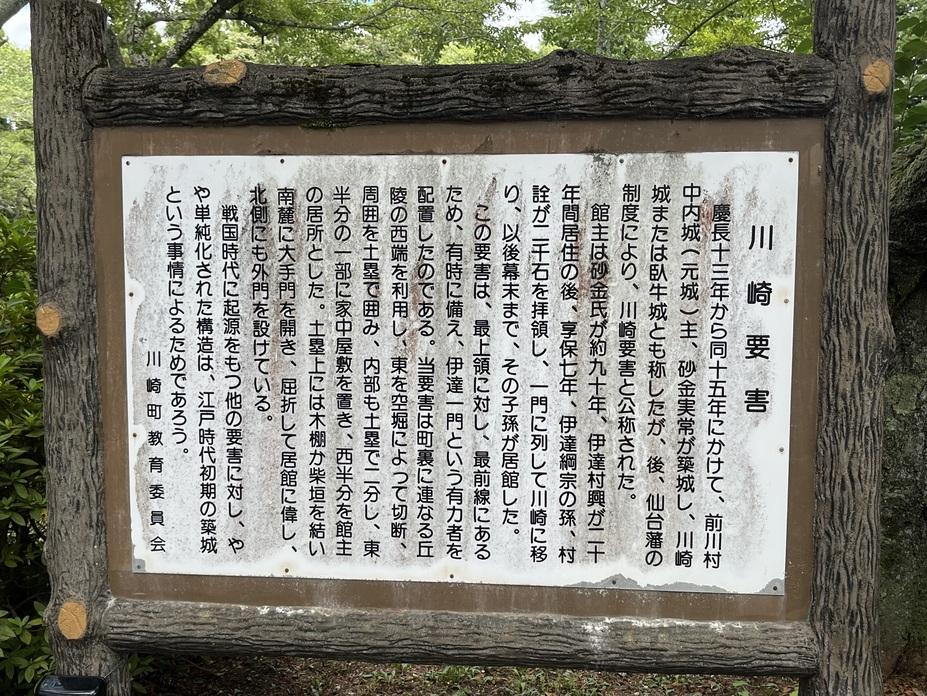 川崎要害
慶長十三年から同十五年にかけて、前川村
中内城（元城）主、砂金実常が築城し、川崎
城または臥牛城とも称したが、後、仙台藩の
制度により、川崎要害と公称された。
館主は砂金氏が約九十年、伊達村興が二十
年間居住の後、享保七年、伊達綱宗の孫、村
詮が二千石を拝領し、一門に列して川崎に移
り、以後幕末まで、その子孫が居館した。
この要害は、最上領に対し、最前線にある
ため、有時に備え、伊達一門という有力者を
配置したのである。当要害は町裏に連なる丘
陵の西端を利用し、東を空堀によつて切断、
周囲を土塁で囲み、内部も土塁で二分し、東
半分の一部に家中屋敷を置き、西半分を館主
の居所とした。土塁上には木棚か柴垣を結い
南麓に大手門を開き、屈折して居館に偉し、
北側にも外門を設けている。
戦国時代に起源をもつ他の要害に対し、や
や単純化された構造は、江戸時代初期の築城
という事情によるためであろう。
川崎町教育委員会